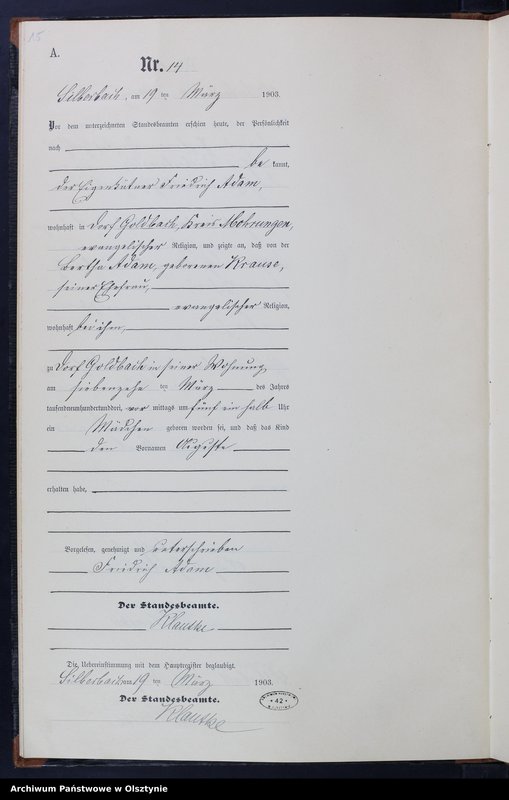 15
A.
Nr. 14
Silberbach, am 19 ten März 1903.
Vor dem unterzeichneten Standesbeamten erschien heute, der Persönlichkeit
nach
be kannt,
der Eigenkätner Friedrich Adam,
wohnhaft in Dorf Goldbach, Kreis Mohrungen,
evangelischer Religion, und zeigte an, daß von der
Bertha Adam, geborenen Krause,
seiner Ehefrau,
evangelischer Religion,
wohnhaft bei ihm,
zu Dorf Goldbach in seiner Wohnung,
am siebenzehn ten März des Jahres
tausendneunhundertunddrei, vor mittags um fünf ein halb Uhr
ein Mädchen geboren worden sei, und daß das Kind
den Vornamen Auguste
erhalten habe,
Vorgelesen, genehmigt und unterschrieben
Friedrich Adam
Der Standesbeamte.
Klautke
Die Uebereinstimmung mit dem Hauptregister beglaubigt.
Silberbach, am 19 ten März 1903.
Der Standesbeamte.
Klautke
* 42 *
Archiwum Państwowe w Olsztynie